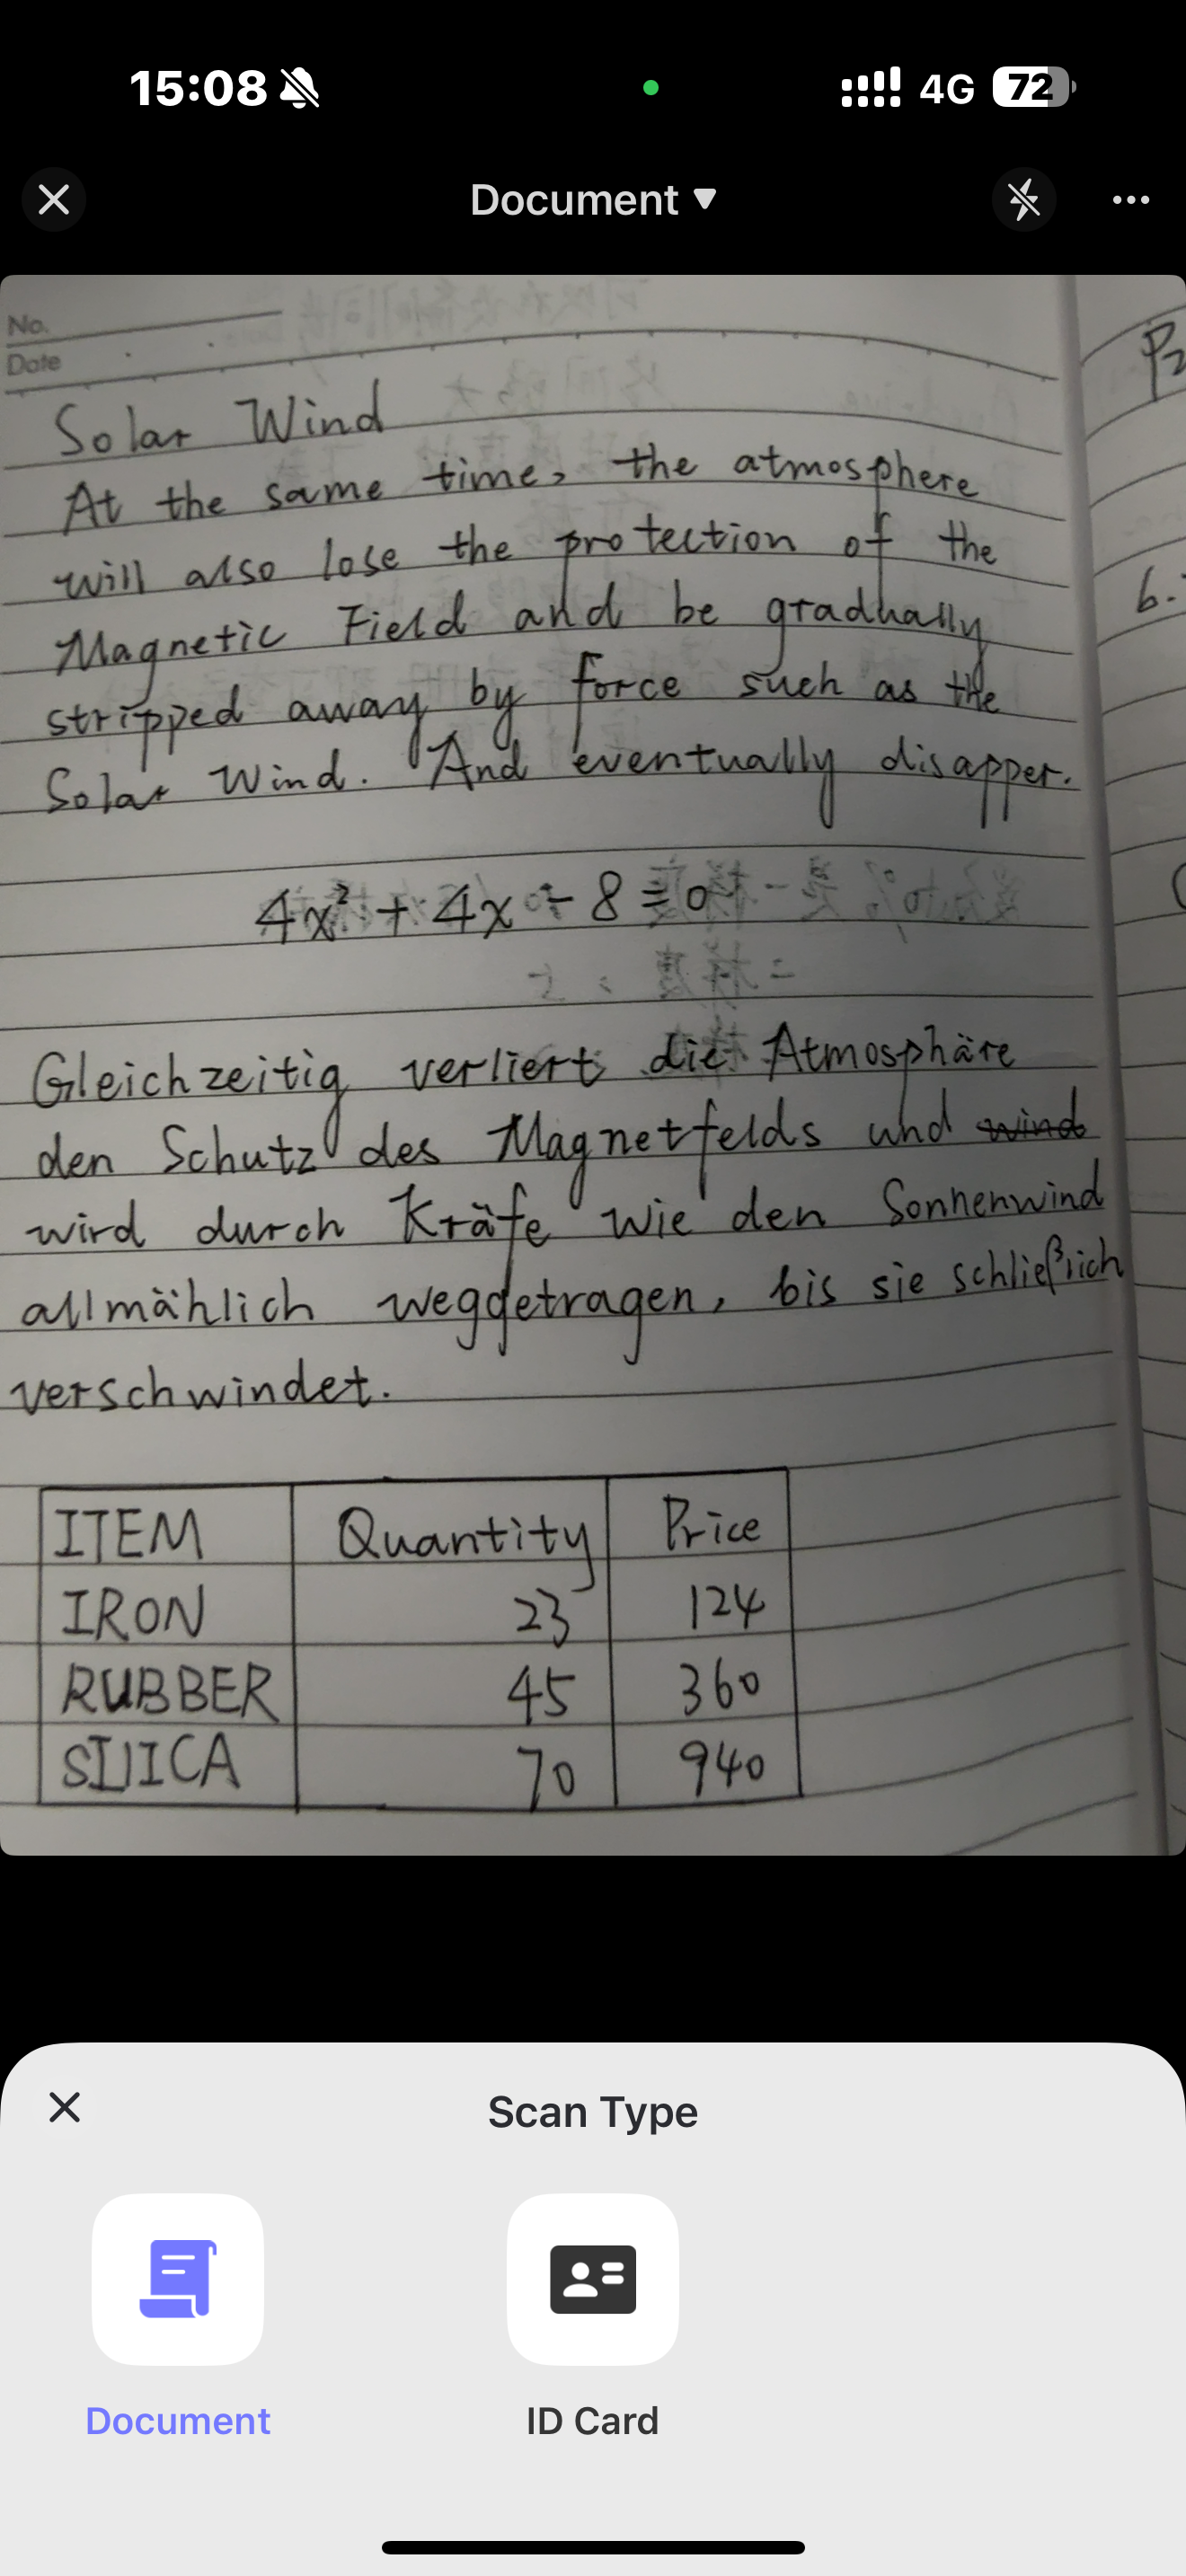 15:08
4G
72
Document ▼
No.
Date
Solar Wind
At the same time, the atmosphere
will also lose the protection of the
Magnetic Field and be gradually
stripped away by force such as the
Solar Wind. And eventually disapper.
4x² + 4x - 8 = 0
Gleichzeitig verliert die Atmosphäre
den Schutz des Magnetfelds und wind
wird durch Kräfe wie den Sonnenwind
allmählich weggetragen, bis sie schließlich
verschwindet.
ITEM Quantity Price
IRON 23 124
RUBBER 45 360
SILICA 70 940
P2
6.
Scan Type
Document
ID Card